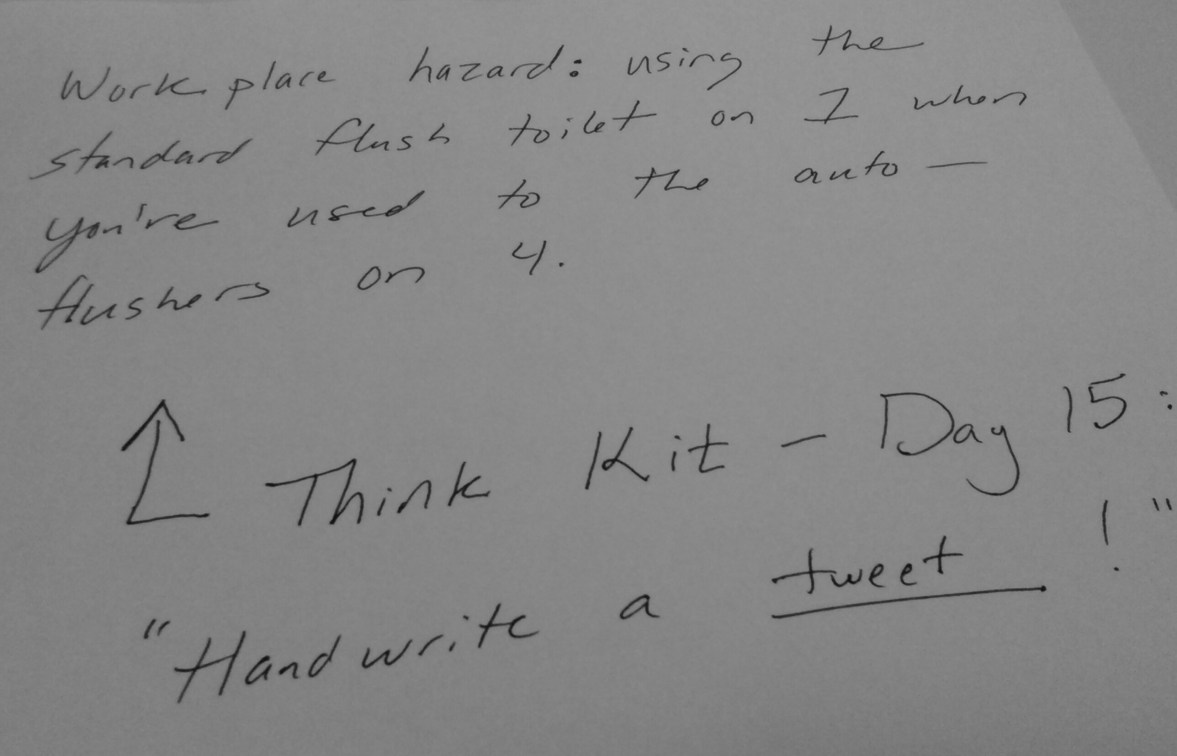 Workplace hazard: using the
standard flush toilet on 1 when
you're used to the auto-
flushers on 4.
↑ Think Kit - Day 15:
"Handwrite a tweet!"